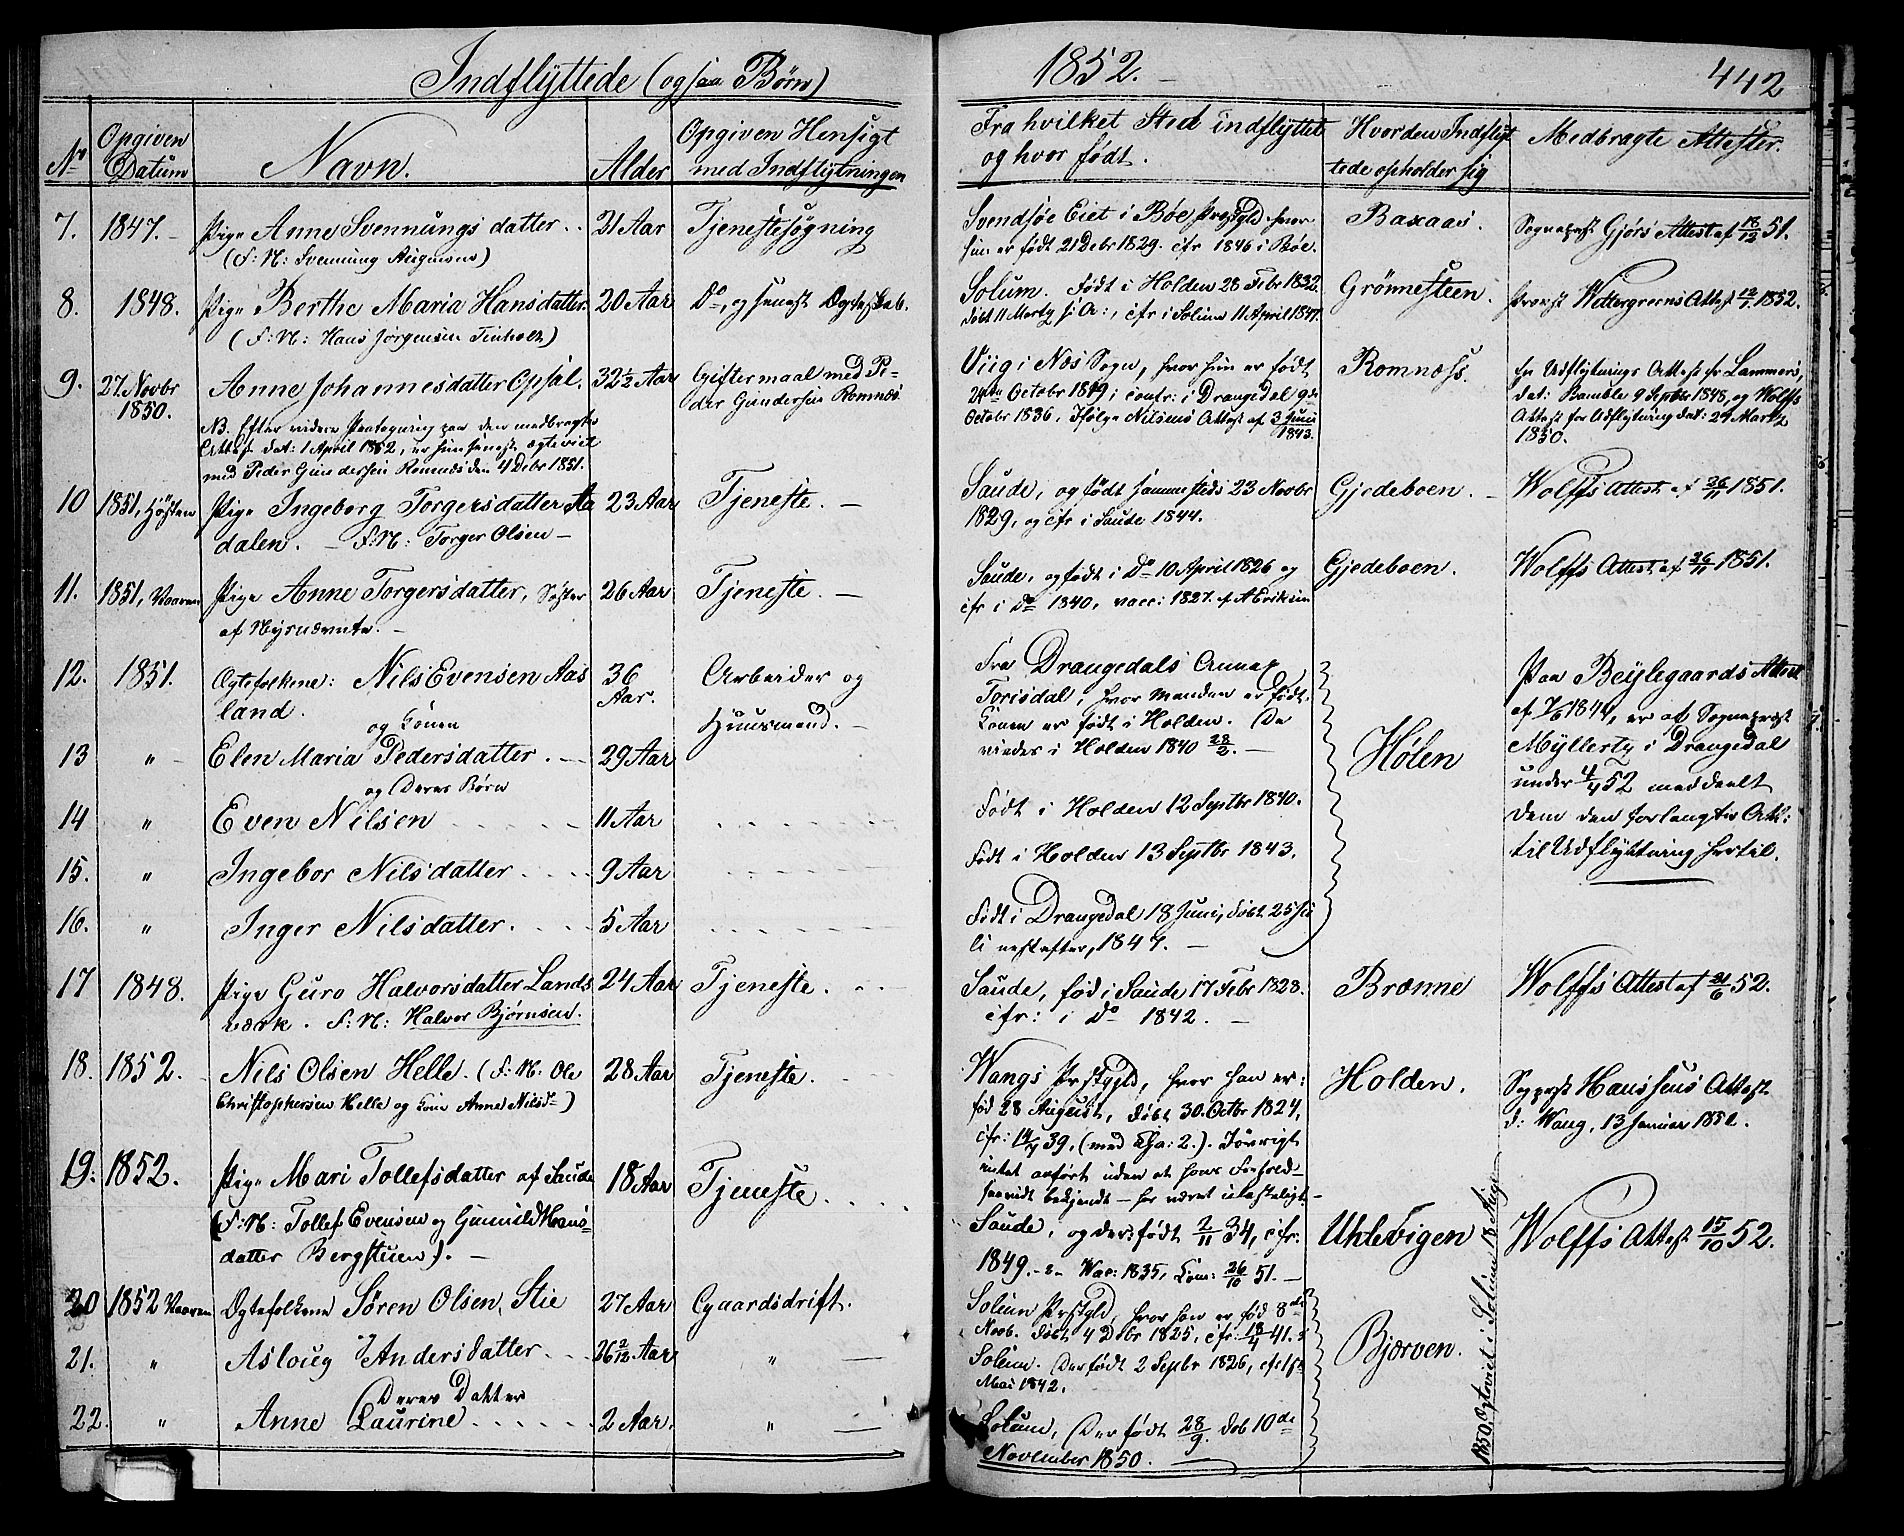 Indflyttede (ogsaa Børn)
1852.
442
No
Opgiven Datum
Navn.
Alder
Opgiven Hensigt med Indflytningen
Fra hvilket Sted indflyttet og hvor født.
Hvor den Indflyttede opholder sig
Medbragte Attester.
7. 1847. Pige Anne Svennungsdatter 21 Aar Tjenestesøgning
(F: N: Svennung
Svendsøe Eiet i Bøe Præstgld hvor
hun er født 21 Debr 1829. cfr 1846 i Bøe.
Baxaas.
Sogneprst Gjørs Attest af 18/12 51.
8. 1848. Pige Berthe Maria Hansdatter. 20 Aar Do, og senest Ægteskab.
(F: N: Hans Jørgensen Tinholt)
Solum. Født i Holden 28 Febr 1832.
døbt 11 Marts s: A:, cfr i Solum 11 April 1847.
Grönnesteen.
Provst Wettergreens Attest 1852.
9. 27. Novbr 1850. Anne Johannesdatter Opsal. 32½ Aar Giftermaal med Pe-
der Gundersen Romnæs.
NB. Efter videre Paategning paa den medbragte
Attest dat: 1 April 1852, er hun senest ægteviet
med Peder Gundersen Romnæs den 4 Debr 1851.
Viig i Næs Sogn, hvor hun er født
24de Octobr 1819; confr: i Drangedal 9de
Octobr 1836, ifølge Nilsens Attest af 3 Juni
1843.
Romnæss.
En Udflytnings Attest fr Lammers,
dat: Bamble 9 Septbr 1848, og Wolffs
Attest for Udflytning dat: 29 Marts
1850.
10 1851, Høsten Pige Ingeborg Torgersdatter Aa 23 Aar Tjeneste.
dalen. F: N: Torger Olsen
Saude, og født sammesteds 23 Novbr
1829, og cfr i Saude 1844.
Gjedeboen.
Wolffs Attest af 26/11 1851.
11. 1851, Vaaren Pige Anne Torgersdatter, Søster 26 Aar Tjeneste.
af Nysnævnte.
Saude, og født i Do 10 April 1826 og
cfr i Do 1840, vacc: 1827. af A Eriksen
Gjedeboen.
Wolffs Attest af 26/11 1851.
12. 1851. Ægtefolkene: Nils Evensen Aas 36 Aar. Arbeider og
land. Huusmand.
og Konen
13 " Elen Maria Pedersdatter. 29 Aar
og Deres Børn
Fra Drangedals Annex
Torisdal, hvor Manden er født.
Konen er født i Holden. De
viedes i Holden 1840 28/2.
Hølen
Paa Beijlegaards Attest
af er af Sogneprst
Myllerts i Drangedal
under 4/4 52 meddeelt
dem den forlangte Att:
til Udflyttning hertil.
14 " Even Nilsen 11 Aar
Født i Holden 12 Septbr 1840.
15. " Ingebor Nilsdatter 9 Aar
Født i Holden 13 Septbr 1843.
16. " Inger Nilsdatter. 5 Aar
Født i Drangedal 18 Juni, døbt 25 Ju
li nestefter, 1847.
17 1848. Pige Guro Halvorsdatter Lands 24 Aar Tjeneste.
værk. F: N: Halvor Bjørnsen.
Saude, fød i Saude 17 Febr 1828.
cfr: i Do 1842.
Brænne
Wolffs Attest af 21/6 52.
18. 1852. Nils Olsen Helle. (F: N: Ole 28 Aar Tjeneste.
Christophersen Helle og Kone Anne Nilsd)
Wangs Prstgld, hvor han er:
fød 28 August, døbt 30. Octbr 1824,
cfr: 39, (med Cha: 2.). Iøvrigt
intet anført uden at hans Forhold
saavidt bekjendt har været ulasteligt
Holden.
Sognprst Hanssens Attest
d: Wang, 13 Januar 1852.
19. 1852. Pige Mari Tollefsdatter af Saude 18 Aar Tjeneste.
(F: N: Tollef Evensen og Gunnild Hans-
datter Bergstuen).
Saude, og der født 2/11 34, cfr:
1849. Vac: 1835, Com: 26/10 51.
Uhlevigen
Wolffs Attest 15/10 52.
20 1852 Vaaren Ægtefolkene Søren Olsen Stie 27 Aar Gaardsdrift.
Solum Prstgld, hvor han er fød 8de
Novb. døbt 4 Debr 1825, cfr: 18/4 41.
Bjerven.
1850. Ægteviet i Solum 18 Aug
21. " Asloug Andersdatter 26 2/12 Aar "
Solum. Der født 2 Septbr 1826, cfr
Mai 1842.
Deres Datter
22. " Anne Laurine 2 Aar. "
Solum, Der født 28/9. døb 10de
November 1850.